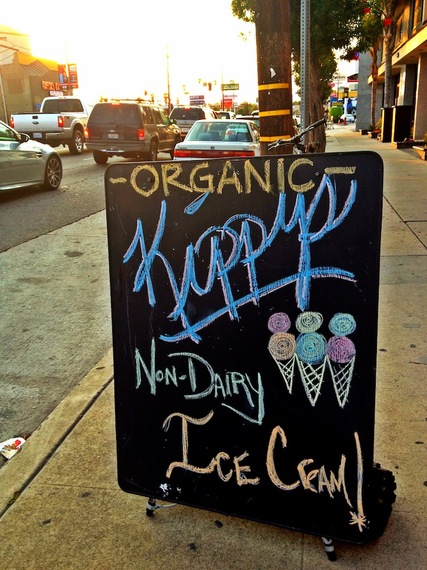 -ORGANIC-
Kippy's
Non-Dairy
Ice Cream!